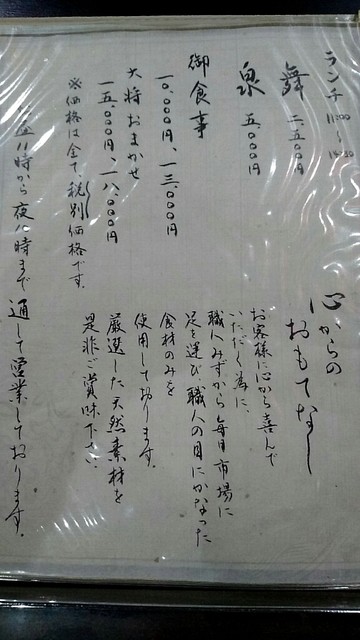 ランチ 11:00〜
舞 二五〇〇円
泉 五、〇〇〇円
御食事
一〇、〇〇〇円、一三、〇〇〇円
大将おまかせ
一五、〇〇〇円、一八、〇〇〇円
※価格は全て税別価格です。
心からの
おもてなし
お客様に心から喜んで
いただく為に、
職人みずから毎日市場に
足を運び、職人の目にかなった
食材のみを
使用しております。
厳選した天然素材を
是非ご賞味下さい。
昼11時から夜八時まで通して営業しております。